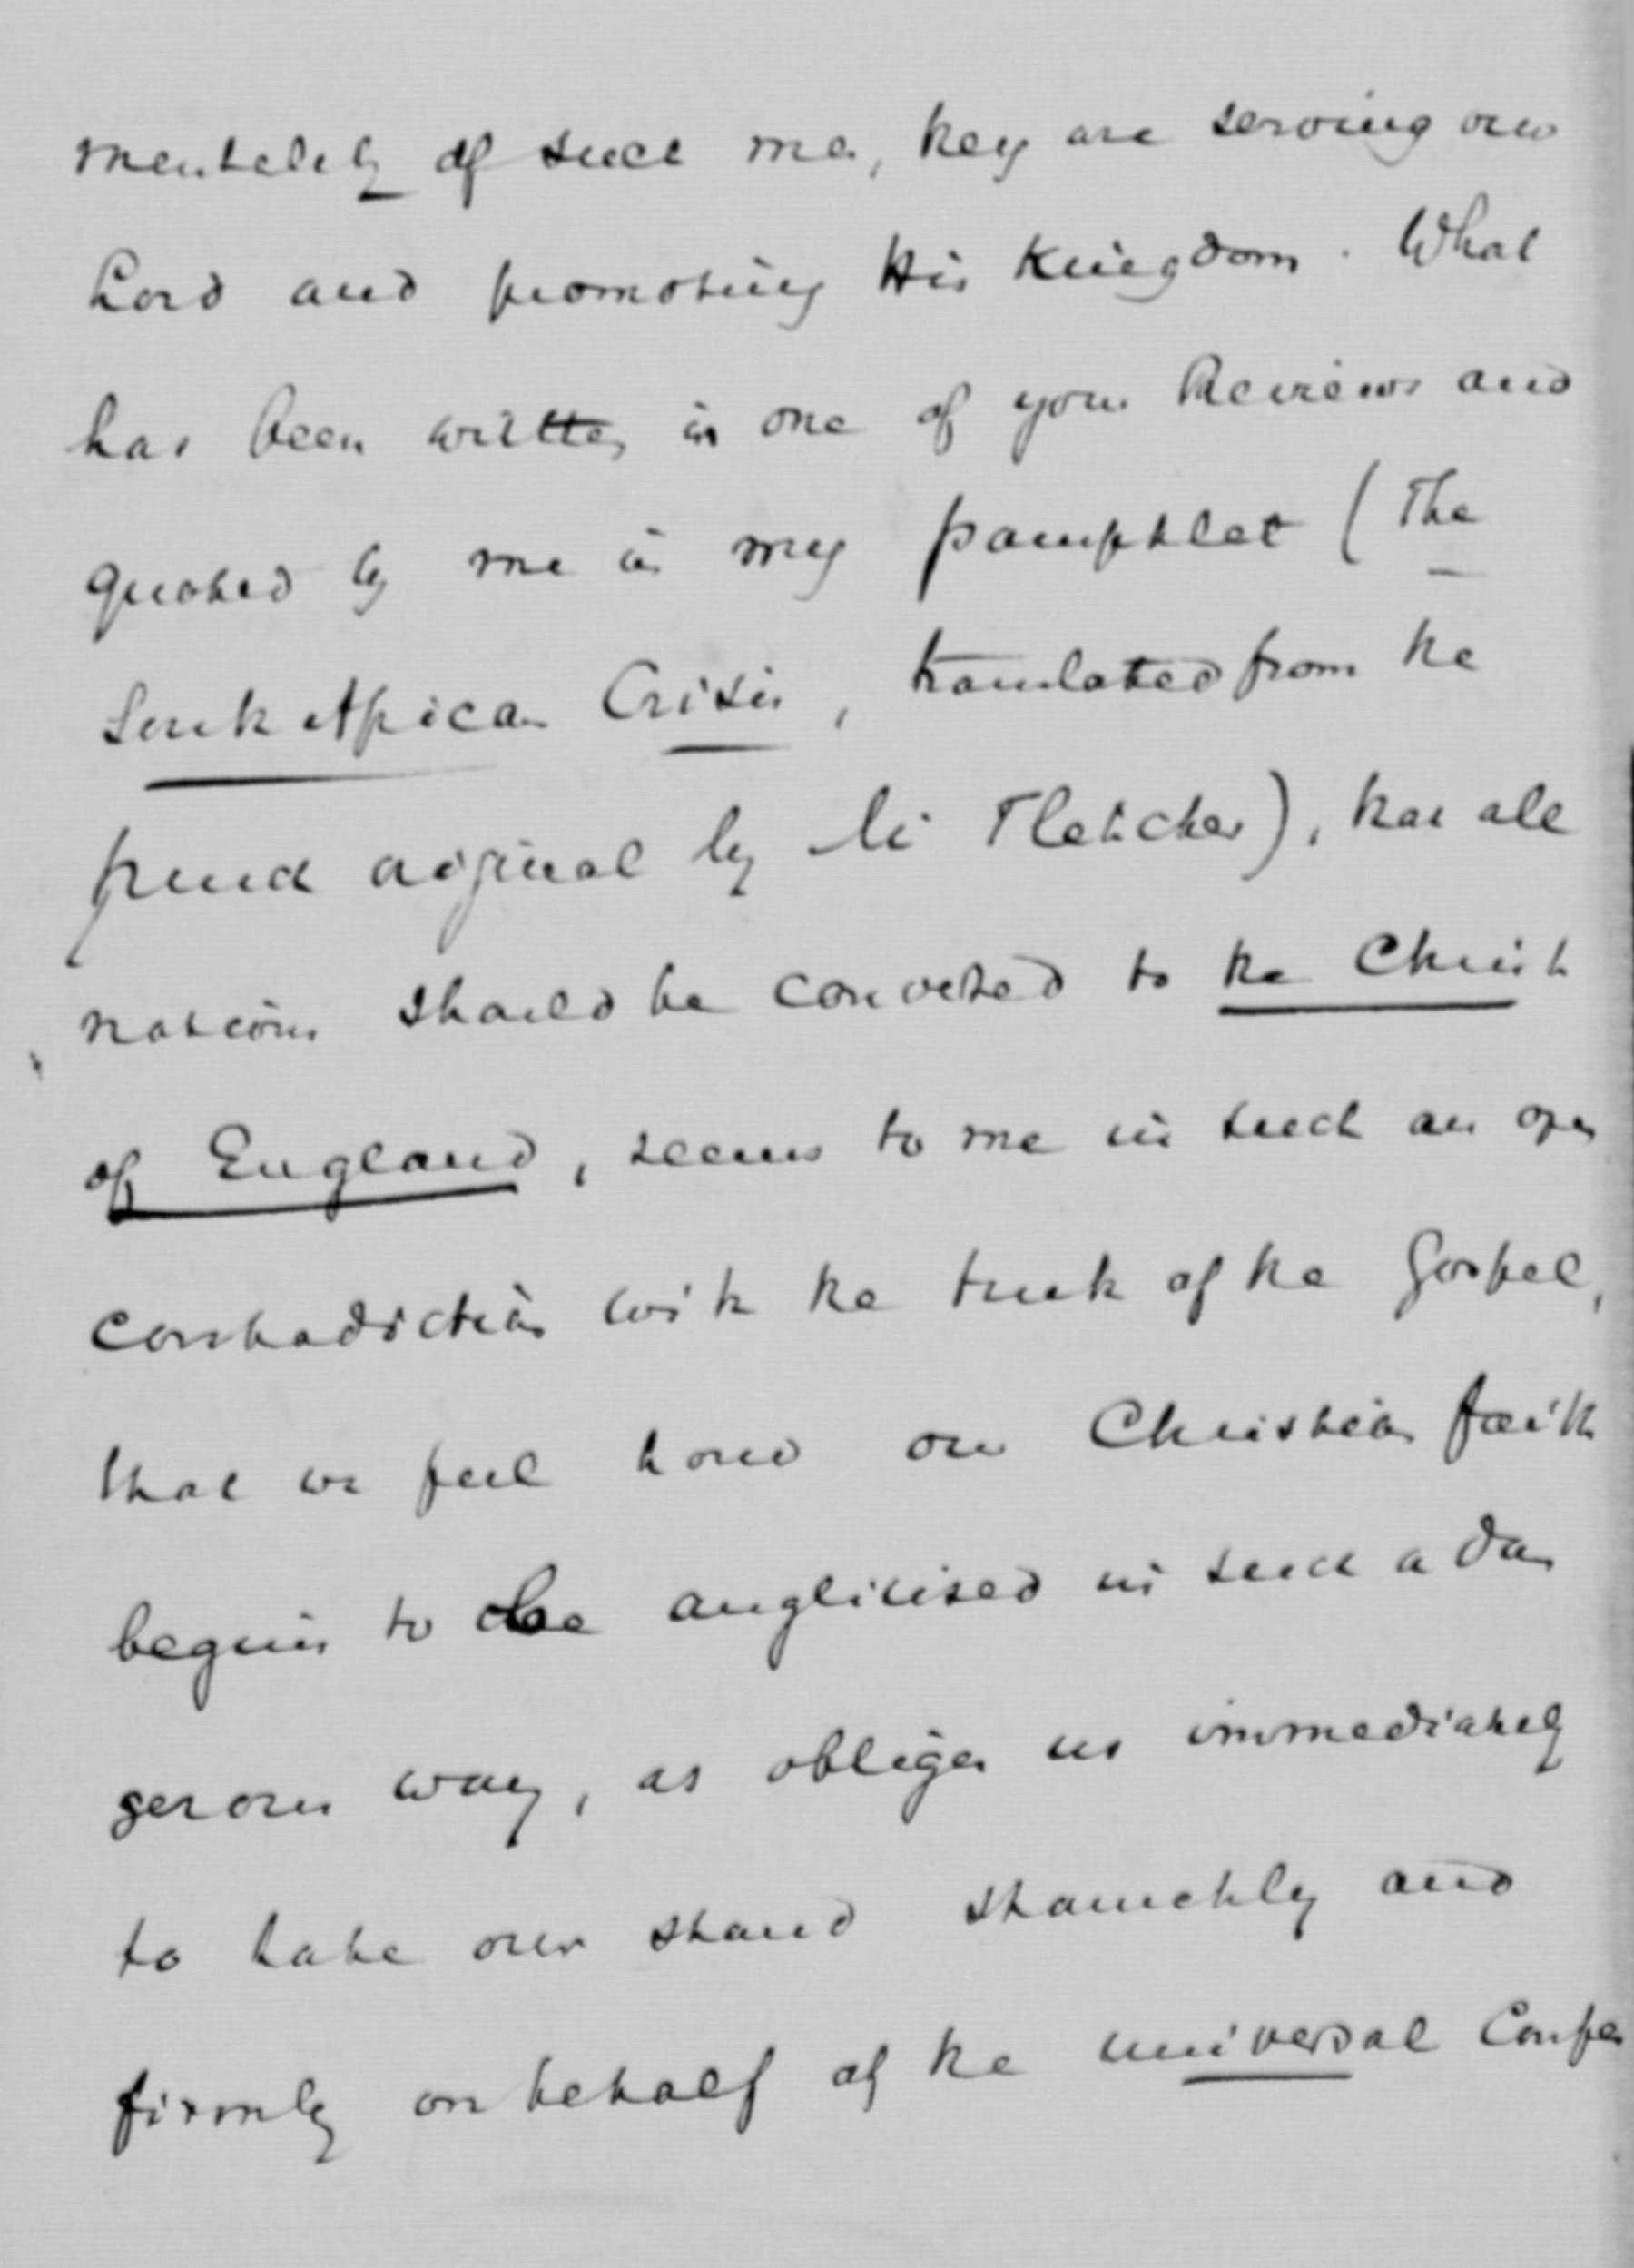 mentality of such men, they are serving our
Lord and promoting His Kingdom. What
has been written in one of your Reviews and
quoted by me in my pamphlet (The
South African Crisis, translated from the
french original by Mr Fletcher), that all
nations should be converted to the Christ
of England, seems to me in such an open
contradiction with the truth of the Gospel,
that we feel how our Christian faith
begins to be anglicised in such a dan
gerous way, as obliges us immediately
to take our stand staunchly and
firmly on behalf of the universal Confes